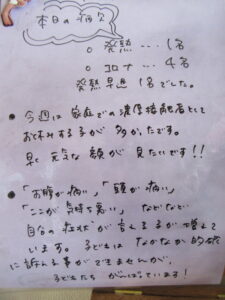 本日の病欠
○ 発熱 … 1名
○ コロナ … 4名
発熱早退 1名でした。
● 今週は 家庭での 濃厚接触者として
お休みする子が 多かったです。
早く 元気な 顔が 見たいです!!
● 「お腹が痛い」、「頭が痛い」
「ここが 気持ち悪い」 などなど
自分の 症状が 言える子が 増えて
います。子どもは なかなか 的確
に訴える事が できませんが、
子どもたち がんばっています!